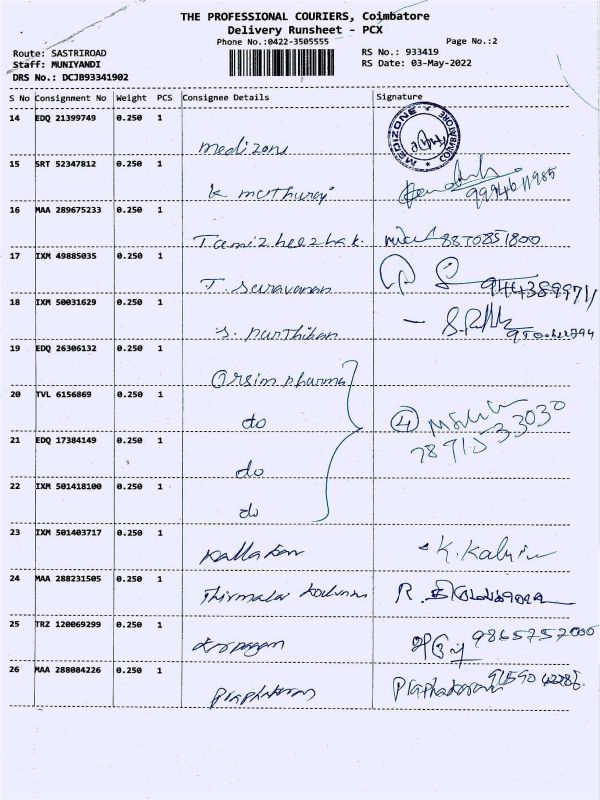 THE PROFESSIONAL COURIERS, Coimbatore
Delivery Runsheet - PCX
Phone No.:0422-3505555
Page No.:2
Route: SASTRIROAD
RS No.: 933419
Staff: MUNIYANDI
RS Date: 03-May-2022
DRS No.: DCJB93341902
S No Consignment No Weight PCS Consignee Details Signature
14 EDQ 21399749 0.250 1
MEDIZONE COIMBATORE
Medizone
15 SRT 52347812 0.250 1
K. muthuraj
16 MAA 289675233 0.250 1
8870851800
17 IXM 49885035 0.250 1
T. saravanan
18 IXM 50031629 0.250 1
S. parthiban
19 EDQ 26306132 0.250 1
pharma
20 TVL 6156869 0.250 1
do 4
78715 33030
21 EDQ 17384149 0.250 1
do
22 IXM 501418100 0.250 1
do
23 IXM 501403717 0.250 1
K. Kalyan
24 MAA 288231505 0.250 1
25 TRZ 120069299 0.250 1
9865757000
26 MAA 288084226 0.250 1
Praphakaran Praphakaran